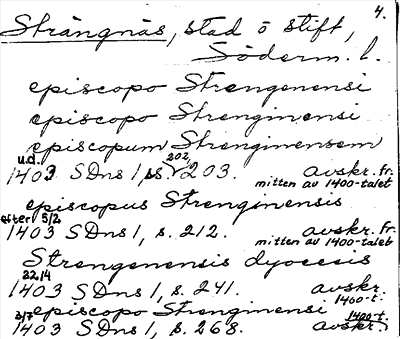 4.
Strängnäs, stad o stift,
Söderm. l.
episcopo Strengenensi
episcopo Strenginensi
episcopum Strenginensem
u.d. 202,
1403 SDns 1, s. 203. avskr. fr.
mitten av 1400-talet
episcopus Strenginensis
efter 5/2
1403 SDns 1, s. 212. avskr. fr.
mitten av 1400-talet
Strengenensis dyocesis
22/4
1403 SDns 1, s. 241. avskr.
1400-t.
episcopo Strenginensi
3/7 1400-t.
1403 SDns 1, s. 268. avskr.